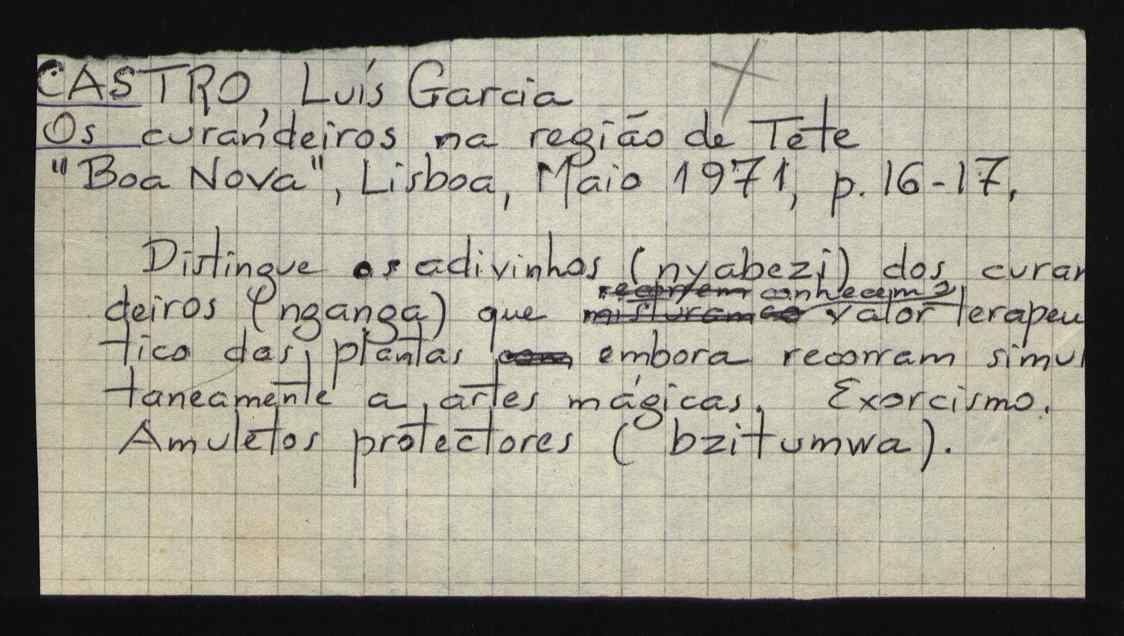 CASTRO, Luís Garcia
Os curandeiros na região de Tete
"Boa Nova", Lisboa, Maio 1971, p. 16-17.
Distingue os adivinhos (nyabezi) dos curan
recorrem conhecem o
deiros (nganga) que misturam valor terapeu
tico das plantas com embora recorram simul
taneamente a artes mágicas. Exorcismo.
Amuletos protectores (bzitumwa).